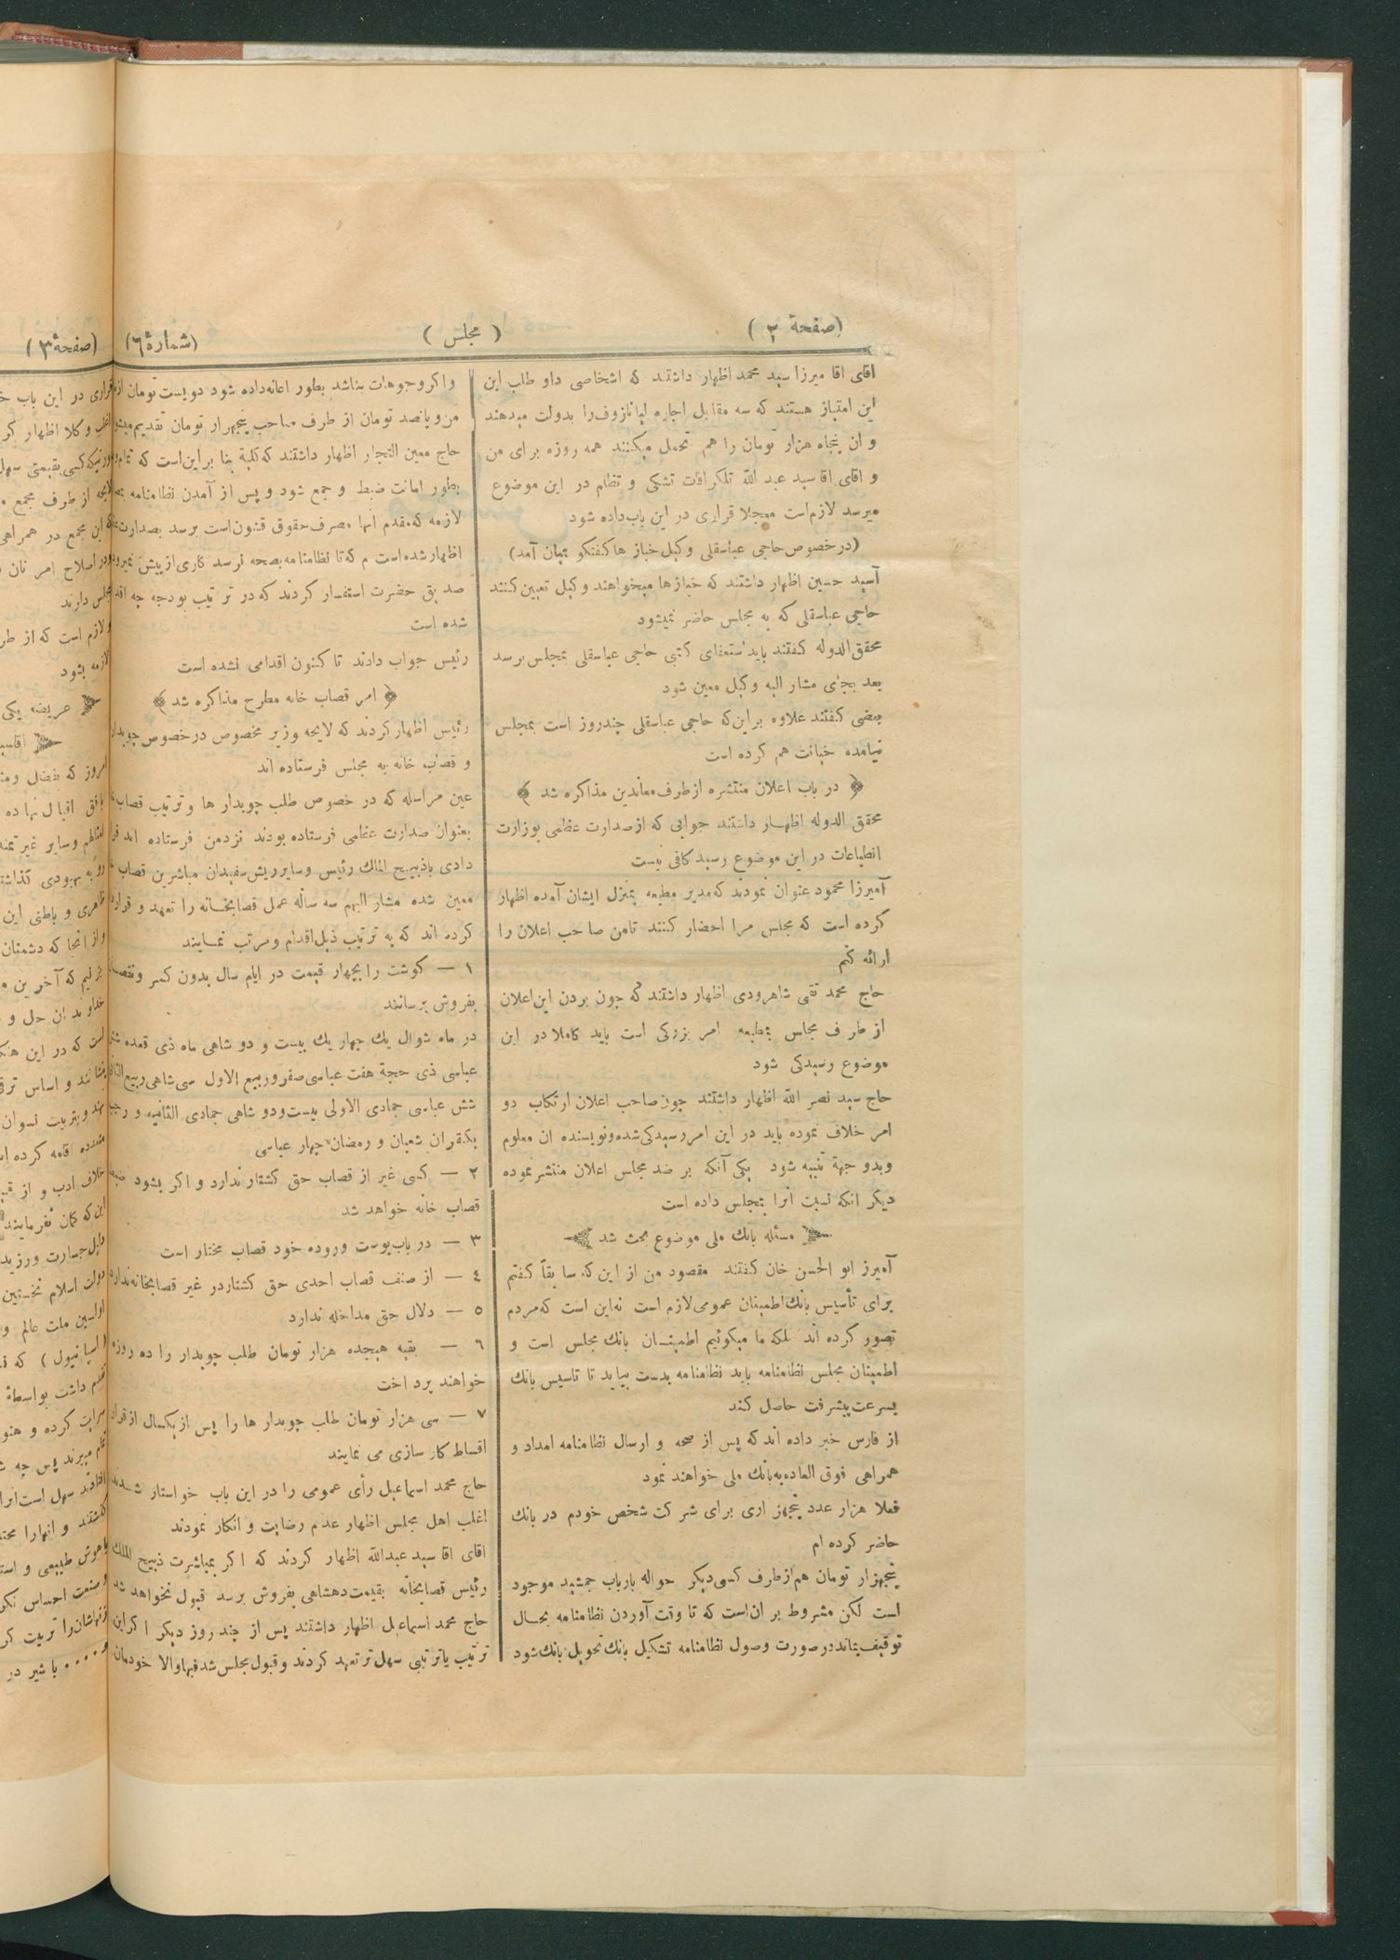 (صفحهٔ ۲)
( مجلس )
(شمارهٔ ۶)
اقای اقا میرزا سید محمد اظهار داشتند که اشخاصی داو طلب این
این امتیاز هستند که سه مقابل اجاره لیانازوف را بدولت میدهند
و ان پنجاه هزار تومان را هم تحمل میکنند همه روزه برای من
و اقای اقا سید عبد الله تلکرافات تشکی و تظلم در این موضوع
میرسد لازم است معجلا قراری در این باب داده شود
(در خصوص حاجی عباسقلی وکیل خباز ها کفتکو بمیان آمد)
آسید حسین اظهار داشتند که خباز ها میخواهند وکیل تعیین کنند
حاجی عباسقلی که به مجلس حاضر نمیشود
محقق الدوله کفتند باید استعفای کتبی حاجی عباسقلی بمجلس برسد
بعد بجای مشار الیه وکیل معین شود
بعضی کفتند علاوه بر این که حاجی عباسقلی چند روز است بمجلس
نیامده خیانت هم کرده است
﴿ در باب اعلان منتشره از طرف معاندین مذاکره شد ﴾
محقق الدوله اظهار داشتند جوابی که از صدارت عظمی بوزارت
انطباعات در این موضوع رسید کافی نیست
آمیرزا محمود عنوان نمودند که مدیر مطبعه بمنزل ایشان آمده اظهار
کرده است که مجلس مرا احضار کنند تا من صاحب اعلان را
ارائه کنم
حاج محمد تقی شاهرودی اظهار داشتند که چون بردن این اعلان
از طرف مجلس بمطبعه امر بزرکی است باید کاملا در این
موضوع رسیدکی شود
حاج سید نصر الله اظهار داشتند چون صاحب اعلان ارتکاب دو
امر خلاف نموده باید در این امر رسیدکی شده و نویسنده ان معلوم
و بدو جهة تنبیه شود یکی آنکه بر ضد مجلس اعلان منتشر نموده
دیکر انکه نسبت انرا بمجلس داده است
مسئله بانك ملی موضوع بحث شد
آمیرز ابو الحسن خان کفتند مقصود من از این که سابقاً کفتم
برای تأسیس بانك اطمینان عمومی لازم است نه این است که مردم
تصور کرده اند بلکه ما میکوئیم اطمینان بانك مجلس است و
اطمینان مجلس نظامنامه باید نظامنامه بدست بیاید تا تاسیس بانك
بسرعت پیشرفت حاصل کند
از فارس خبر داده اند که پس از صحه و ارسال نظامنامه امداد و
همراهی فوق العاده به بانك ملی خواهند نمود
فعلا هزار عدد پنجهزاری برای شرکت شخص خودم در بانك
حاضر کرده ام
پنجهزار تومان هم از طرف کسی دیکر حواله بارباب جمشید موجود
است لکن مشروط بر ان است که تا وقت آوردن نظامنامه بحال
توقیف بماند در صورت وصول نظامنامه تشکیل بانك تحویل بانك شود
و اکر وجوهات بناشد بطور اعانه داده شود دویست تومان از
من و پانصد تومان از طرف صاحب پنجهزار تومان تقدیم میشود
حاج معین التجار اظهار داشتند که کلیة بنا بر این است که تمام
بطور امانت ضبط و جمع شود و پس از آمدن نظامنامه
لازمه که مقدم آنها مصرف حقوق قشون است برسد بصدارت
اظهار شده است م که تا نظامنامه بصحه نرسد کاری از پیش نمیرود
صدیق حضرت استفسار کردند که در ترتیب بودجه چه
شده است
رئیس جواب دادند تا کنون اقدامی نشده است
﴿ امر قصاب خانه مطرح مذاکره شد ﴾
رئیس اظهار کردند که لایحه وزیر مخصوص در خصوص چوبدار
و قصاب خانه به مجلس فرستاده اند
عین مراسله که در خصوص طلب چوبدار ها و ترتیب قصاب
بعنوان صدارت عظمی فرستاده بودند نزد من فرستاده اند
دادی باذبیح الملك رئیس و سایر ریش سفیدان مباشرین قصاب
معین شده مشار الیهم سه ساله عمل قصابخانه را تعهد و قرار
کرده اند که به ترتیب ذیل اقدام و مرتب نمایند
۱ — کوشت را بچهار قیمت در ایام سال بدون کسر و نقص
بفروش برسانند
در ماه شوال یك چهار یك بیست و دو شاهی ماه ذی قعده
عباسی ذی حجة هفت عباسی صفر و ربیع الاول سی شاهی ربیع الثانی
شش عباسی جمادی الاولی بیست و دو شاهی جمادی الثانیه و رجب
یکقران شعبان و رمضان چهار عباسی
۲ — کسی غیر از قصاب حق کشتار ندارد و اکر بشود
قصاب خانه خواهد شد
۳ — در باب پوست و روده خود قصاب مختار است
٤ — از صنف قصاب احدی حق کشتار در غیر قصابخانه ندارد
٥ — دلال حق مداخله ندارد
٦ — بقیه هیجده هزار تومان طلب چوبدار را ده روزه
خواهند پرداخت
۷ — سی هزار تومان طلب چوبدار ها را پس از یکسال از قرار
اقساط کار سازی می نمایند
حاج محمد اسماعیل رأی عمومی را در این باب خواستار شدند
اغلب اهل مجلس اظهار عدم رضایت و انکار نمودند
اقای اقا سید عبدالله اظهار کردند که اکر بمباشرت ذبیح الملك
رئیس قصابخانه بقیمت دهشاهی بفروش برسد قبول نخواهد شد
حاج محمد اسماعیل اظهار داشتند پس از چند روز دیکر اکر این
ترتیب یا ترتیبی سهل تر تعهد کردند و قبول مجلس شد فبها والا خودمان
(صفحهٔ ۳)
قراری در این باب
وکلا اظهار
کسی بقیمتی سهل
از طرف مجمع
این مجمع در همراهی
اصلاح امر نان
مجلس دارند
لازم است که از
لازمه بشود
عریضه یکی
امروز که بفضل
افق اقبال نهاده
و سایر غیر
به بهبودی کذاشته
ظاهری و باطنی این
و از انجا که دشمنان
که آخرین
است که در این
و اساس
تربیت نسوان
اقامه کرده
خلاف ادب و از
این که کمان نفرمایند
جسارت ورزید
دولت اسلام نخستین
اولین ملت عالم و
( اسپانیول ) که
داشت بواسطهٔ
سرایت کرده و هنوز
میبرند پس چه
سهل است
و انها را
باهوش طبیعی و
صنعت احساس
را تربیت
و . . . . با شیر در